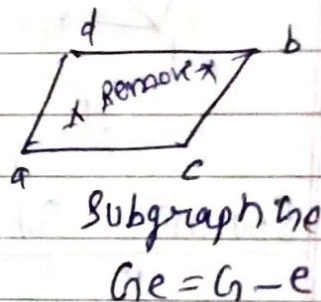 d
b
x Remove x
a
c
Subgraph Ge
Ge = G - e